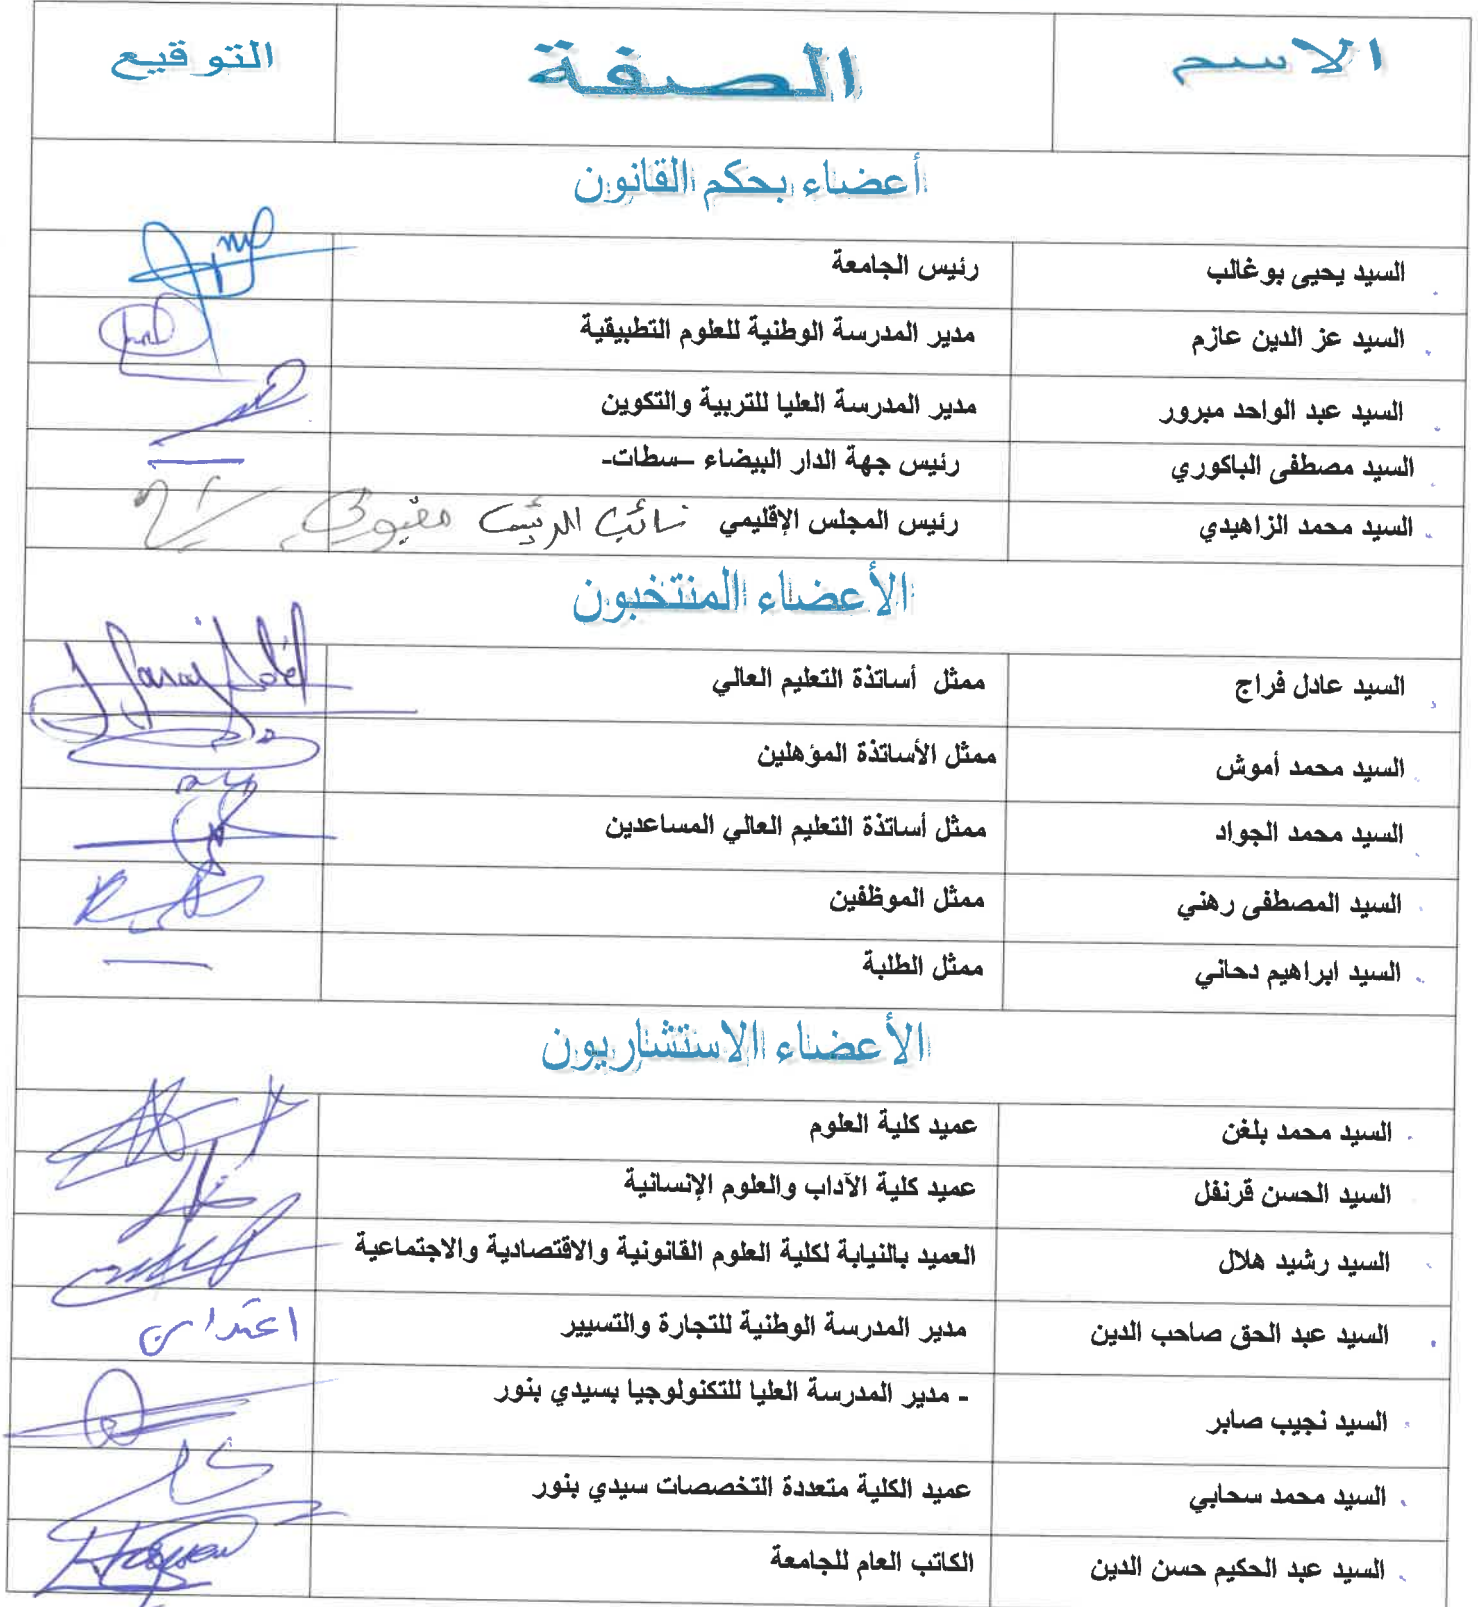 الاسم الصفة التوقيع
أعضاء بحكم القانون
السيد يحيى بوغالب رئيس الجامعة
السيد عز الدين عازم مدير المدرسة الوطنية للعلوم التطبيقية
السيد عبد الواحد مبرور مدير المدرسة العليا للتربية والتكوين
السيد مصطفى الباكوري رئيس جهة الدار البيضاء –سطات-
السيد محمد الزاهيدي رئيس المجلس الإقليمي نائب الرئيس
الأعضاء المنتخبون
السيد عادل فراج ممثل أساتذة التعليم العالي
السيد محمد أموش ممثل الأساتذة المؤهلين
السيد محمد الجواد ممثل أساتذة التعليم العالي المساعدين
السيد المصطفى رهني ممثل الموظفين
السيد ابراهيم دحاني ممثل الطلبة
الأعضاء الاستشاريون
السيد محمد بلغن عميد كلية العلوم
السيد الحسن قرنفل عميد كلية الآداب والعلوم الإنسانية
السيد رشيد هلال العميد بالنيابة لكلية العلوم القانونية والاقتصادية والاجتماعية
السيد عبد الحق صاحب الدين مدير المدرسة الوطنية للتجارة والتسيير
السيد نجيب صابر - مدير المدرسة العليا للتكنولوجيا بسيدي بنور
السيد محمد سحابي عميد الكلية متعددة التخصصات سيدي بنور
السيد عبد الحكيم حسن الدين الكاتب العام للجامعة